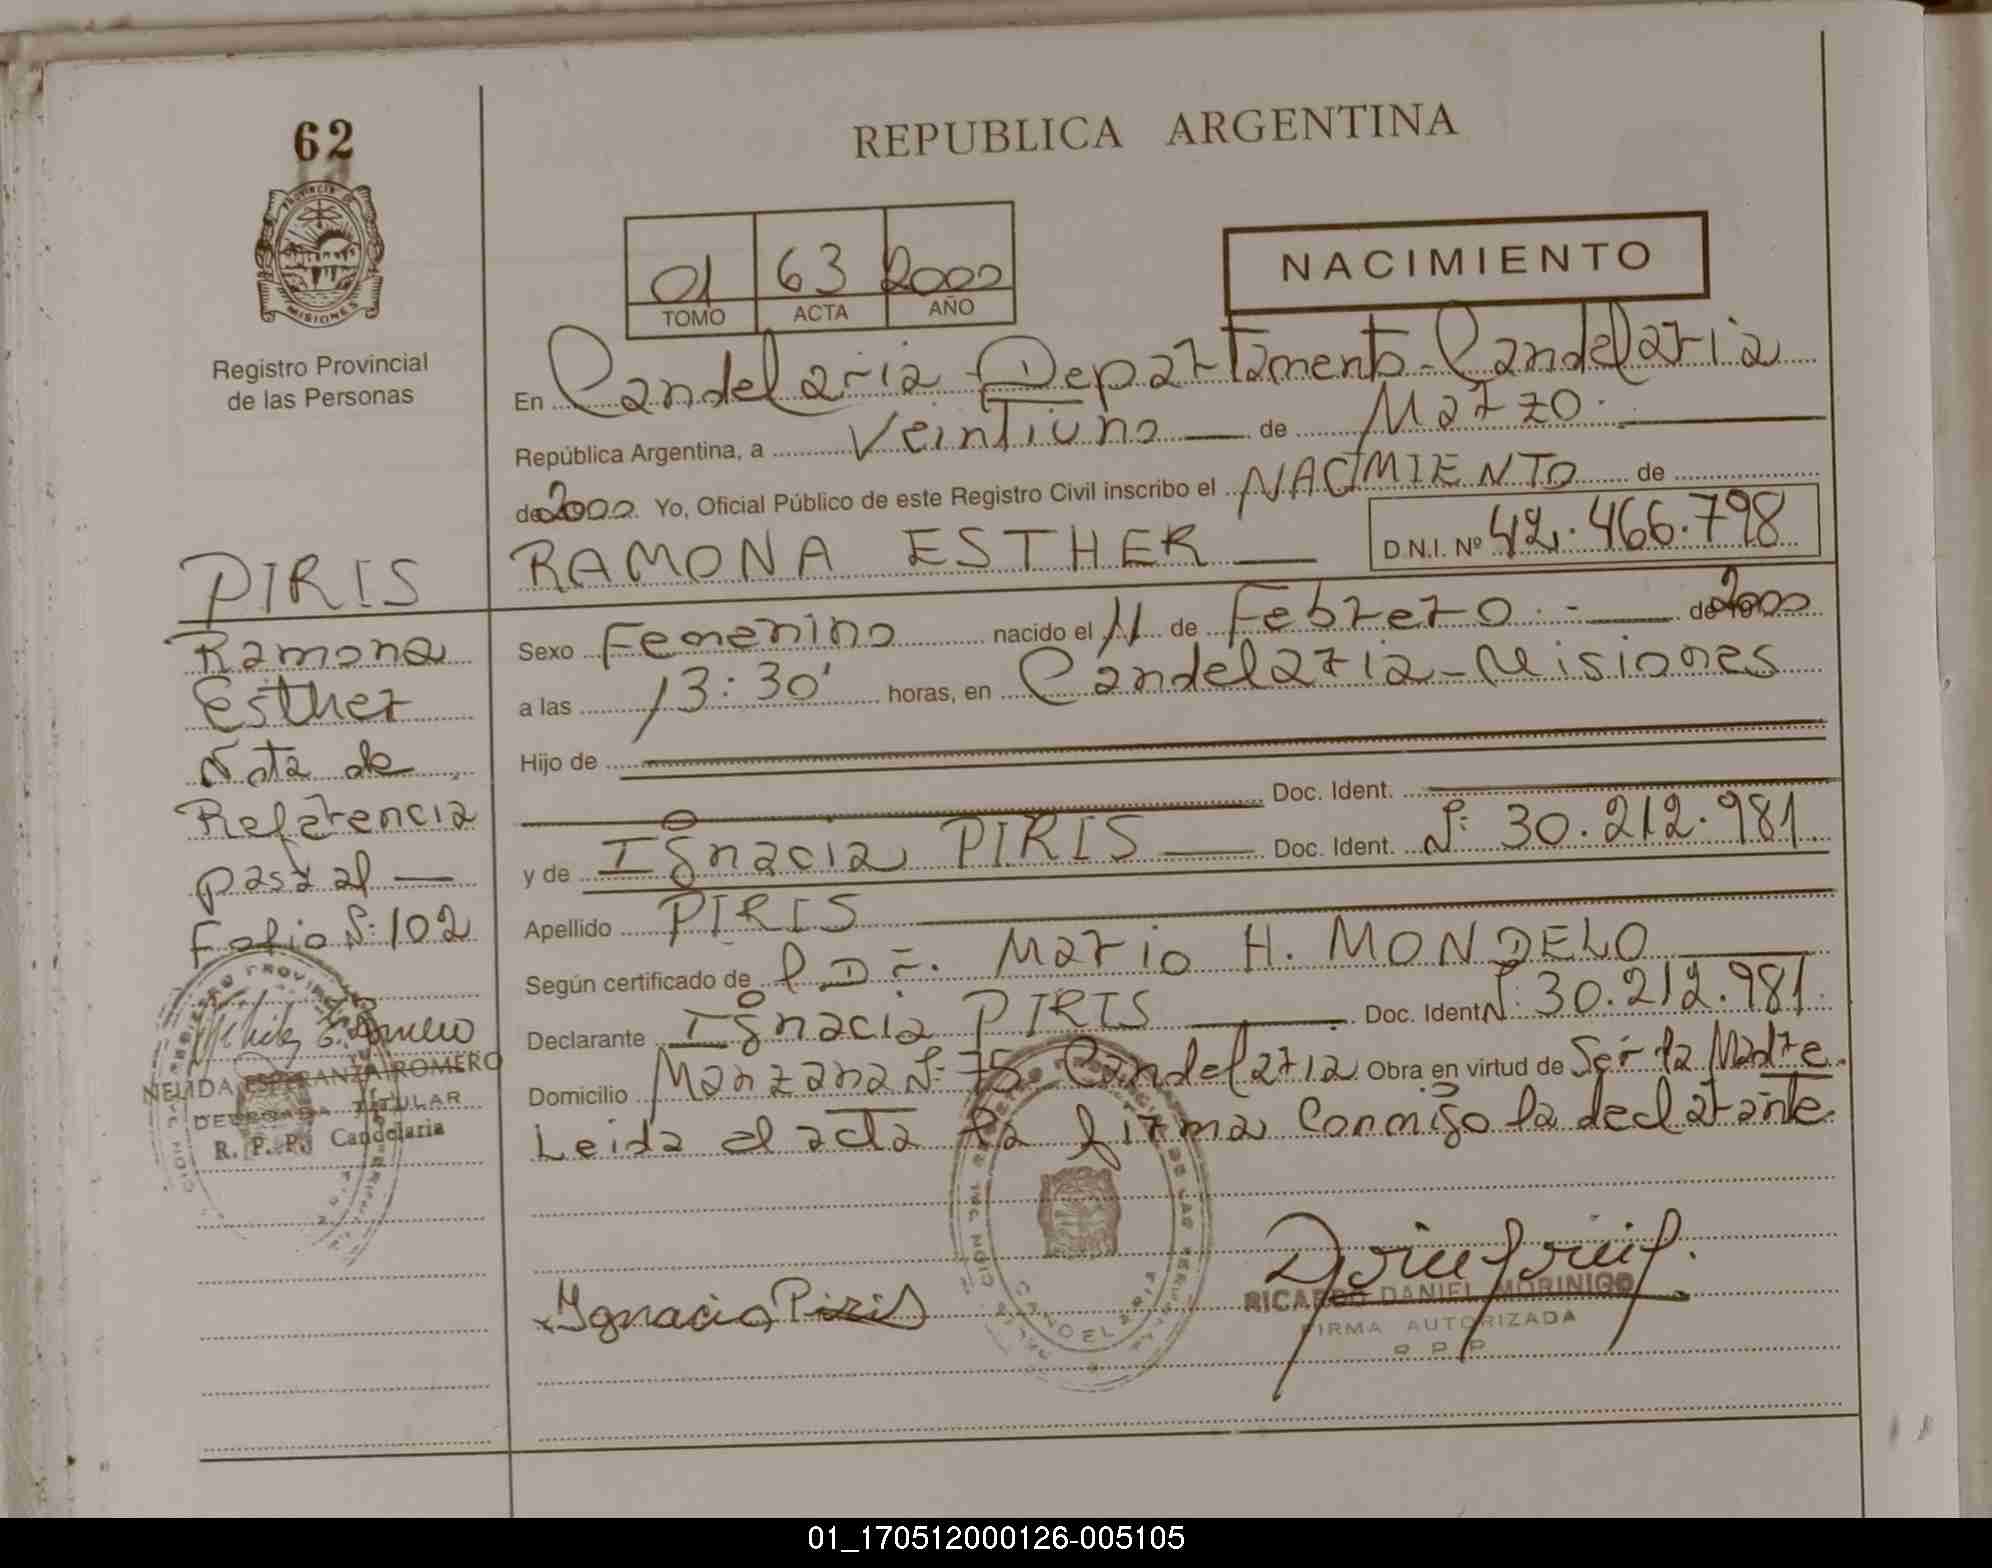 62
REPUBLICA ARGENTINA
PROVINCIA DE
MISIONES
Registro Provincial
de las Personas
01 63 2000
TOMO ACTA AÑO
NACIMIENTO
En Candelaria - Departamento - Candelaria
República Argentina, a Veintiuno de Marzo
de 2000 Yo, Oficial Público de este Registro Civil inscribo el NACIMIENTO de
RAMONA ESTHER D.N.I. Nº 42.466.798
Sexo Femenino nacido el 11 de Febrero de 2000
a las 13:30' horas, en Candelaria - Misiones
Hijo de
Doc. Ident.
y de Ignacia PIRIS Doc. Ident. Nº 30.212.981
Apellido PIRIS
Según certificado de Mario H. MONDELO
Declarante Ignacia PIRIS Doc. Ident. Nº 30.212.981
Domicilio Manzana Nº 75 Candelaria Obra en virtud de Ser la Madre.
Leida el acta la firma Conmigo la declarante.
Ignacia Piris
RICARDO DANIEL MORINIGO
FIRMA AUTORIZADA
R P P
PIRIS
Ramona
Esther
Nota de
Referencia
pasa al
Folio Nº 102
NELIDA ESPERANZA ROMERO
DELEGADA TITULAR
R. P. P. Candelaria
01_170512000126-005105